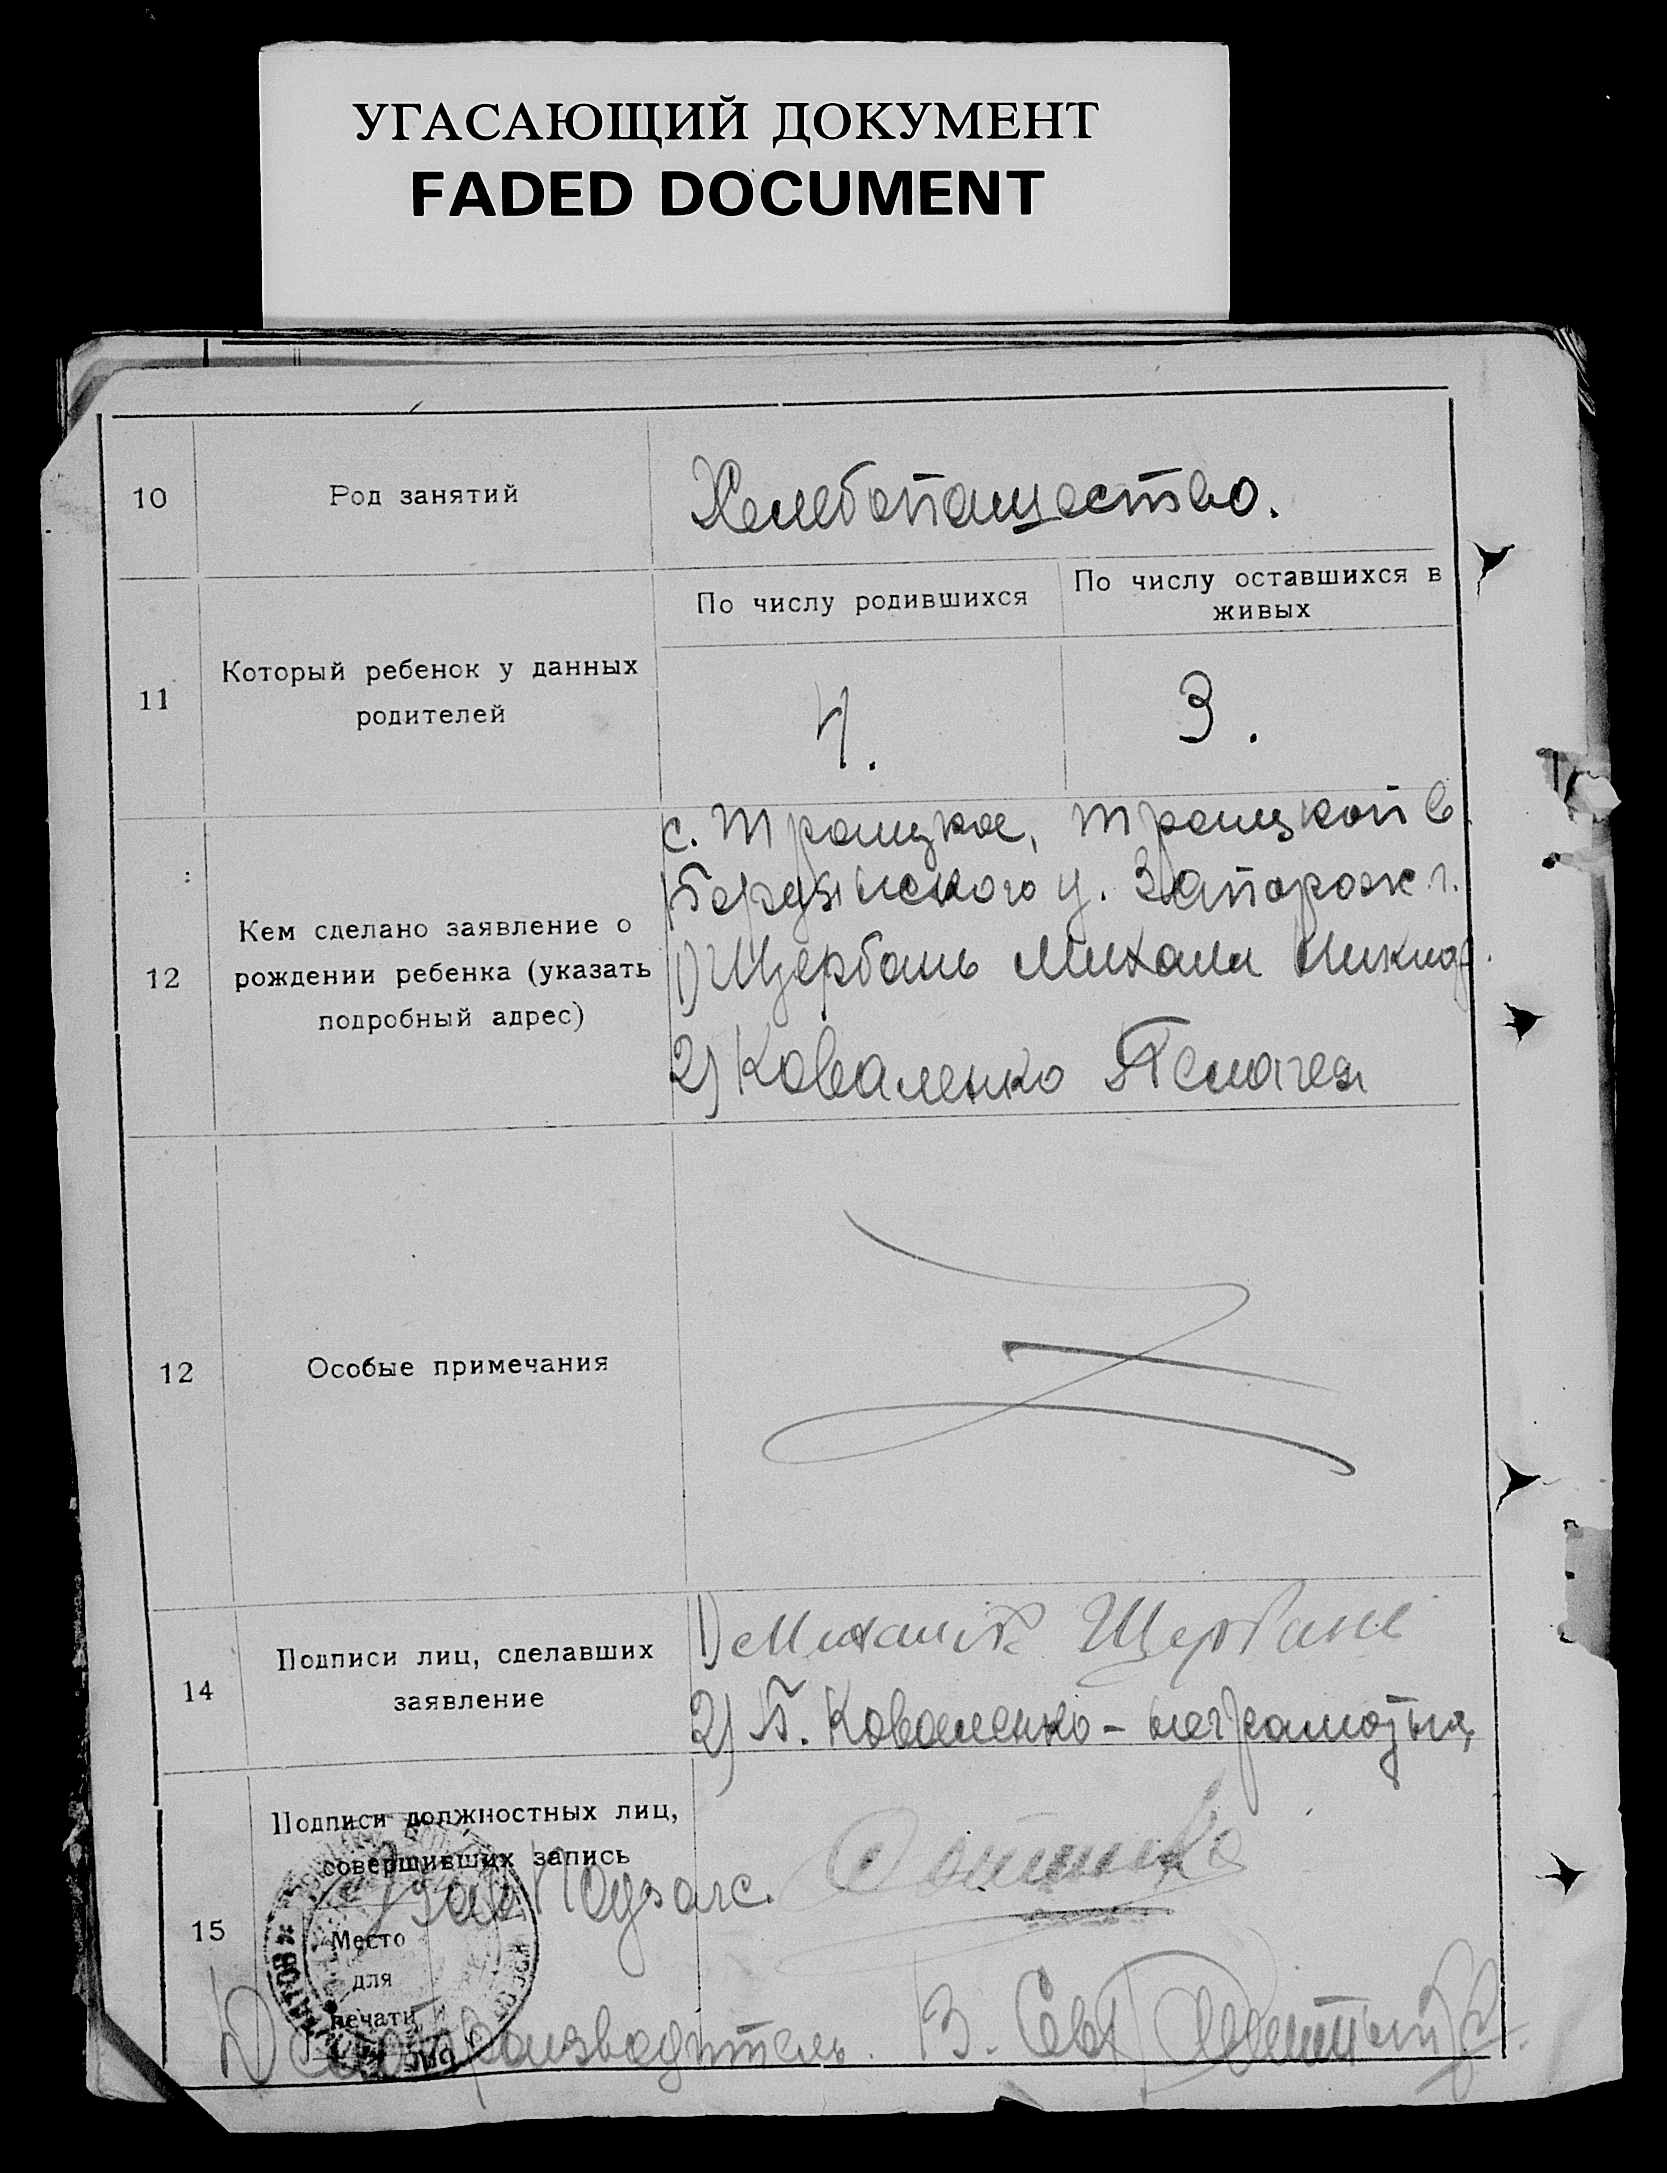 УГАСАЮЩИЙ ДОКУМЕНТ
FADED DOCUMENT
10
Род занятий
Хлебопашество.
11
Который ребенок у данных
родителей
По числу родившихся
4.
По числу оставшихся в
живых
3.
12
Кем сделано заявление о
рождении ребенка (указать
подробный адрес)
с. Троицкое, Троицкой в.
Бердянского у. Запорож г.
1) Щербань Михаил
2) Коваленко Пелагея
12
Особые примечания
14
Подписи лиц, сделавших
заявление
1) Михаил Щербань
2) П. Коваленко - неграмотна,
15
Подписи должностных лиц,
совершивших запись
Зав Подзагс.
Место
для
печати
Делопроизводитель. В.